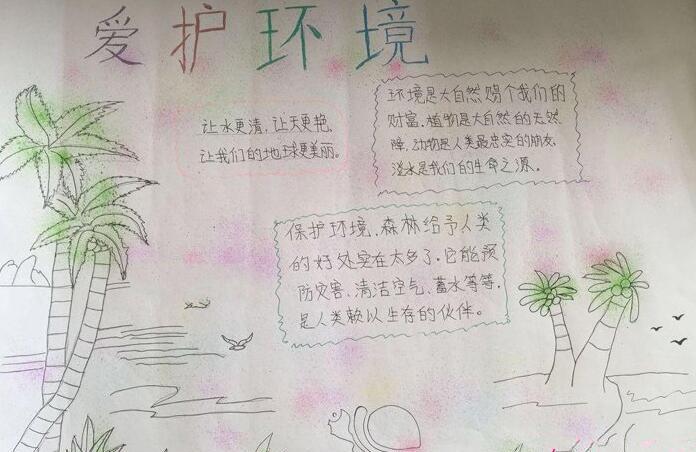 爱护环境
让水更清,让天更艳,
让我们的地球更美丽。
环境是大自然赐个我们的
财富,植物是大自然的天然
障,动物是人类最忠实的朋友,
淡水是我们的生命之源。
保护环境,森林给予人类
的好处实在太多了,它能预
防灾害、清洁空气、蓄水等等,
是人类赖以生存的伙伴。